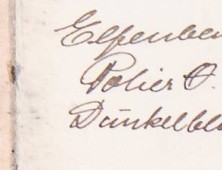 Elfenbei
Polier O.
Dunkelbla